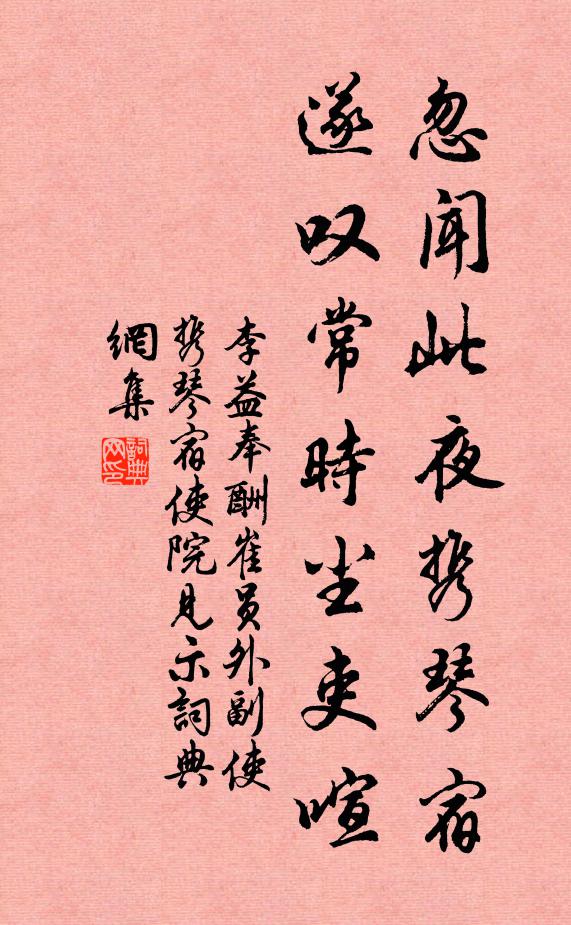 忽闻此夜携琴宿
遂叹常時尘吏喧
李益奉酬崔员外副使
携琴宿使院見示詞典
網集
詞典
网印